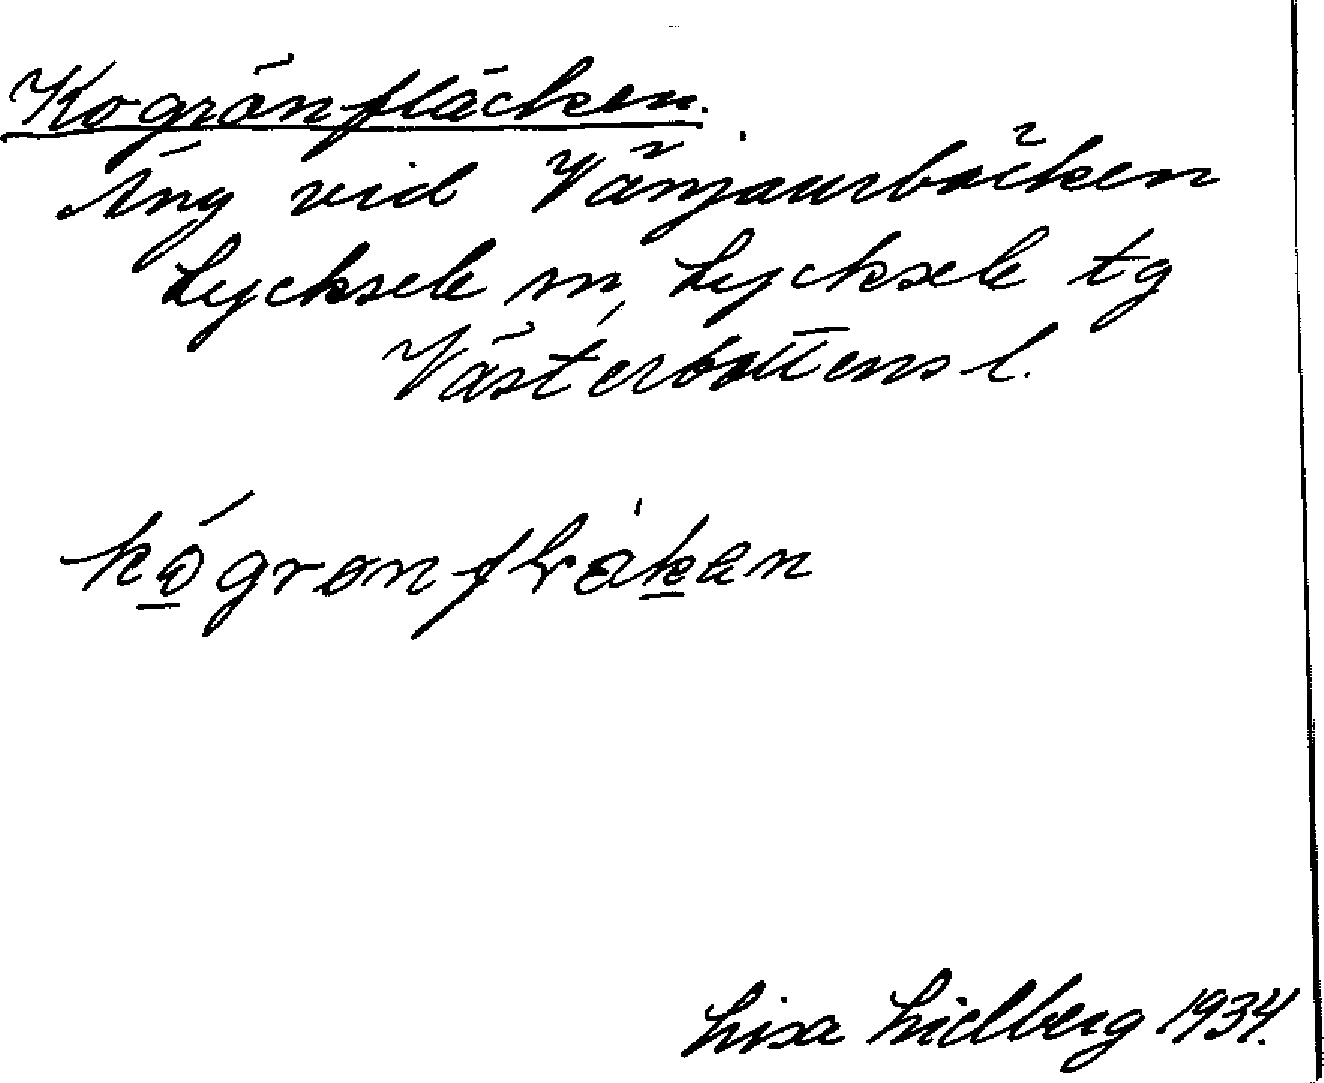 Kogränfläcken.
Äng vid Vänjaurbäcken
Lycksele sn, Lycksele tg
Västerbottens l.
kógranflákan
Lisa Lidberg 1934.